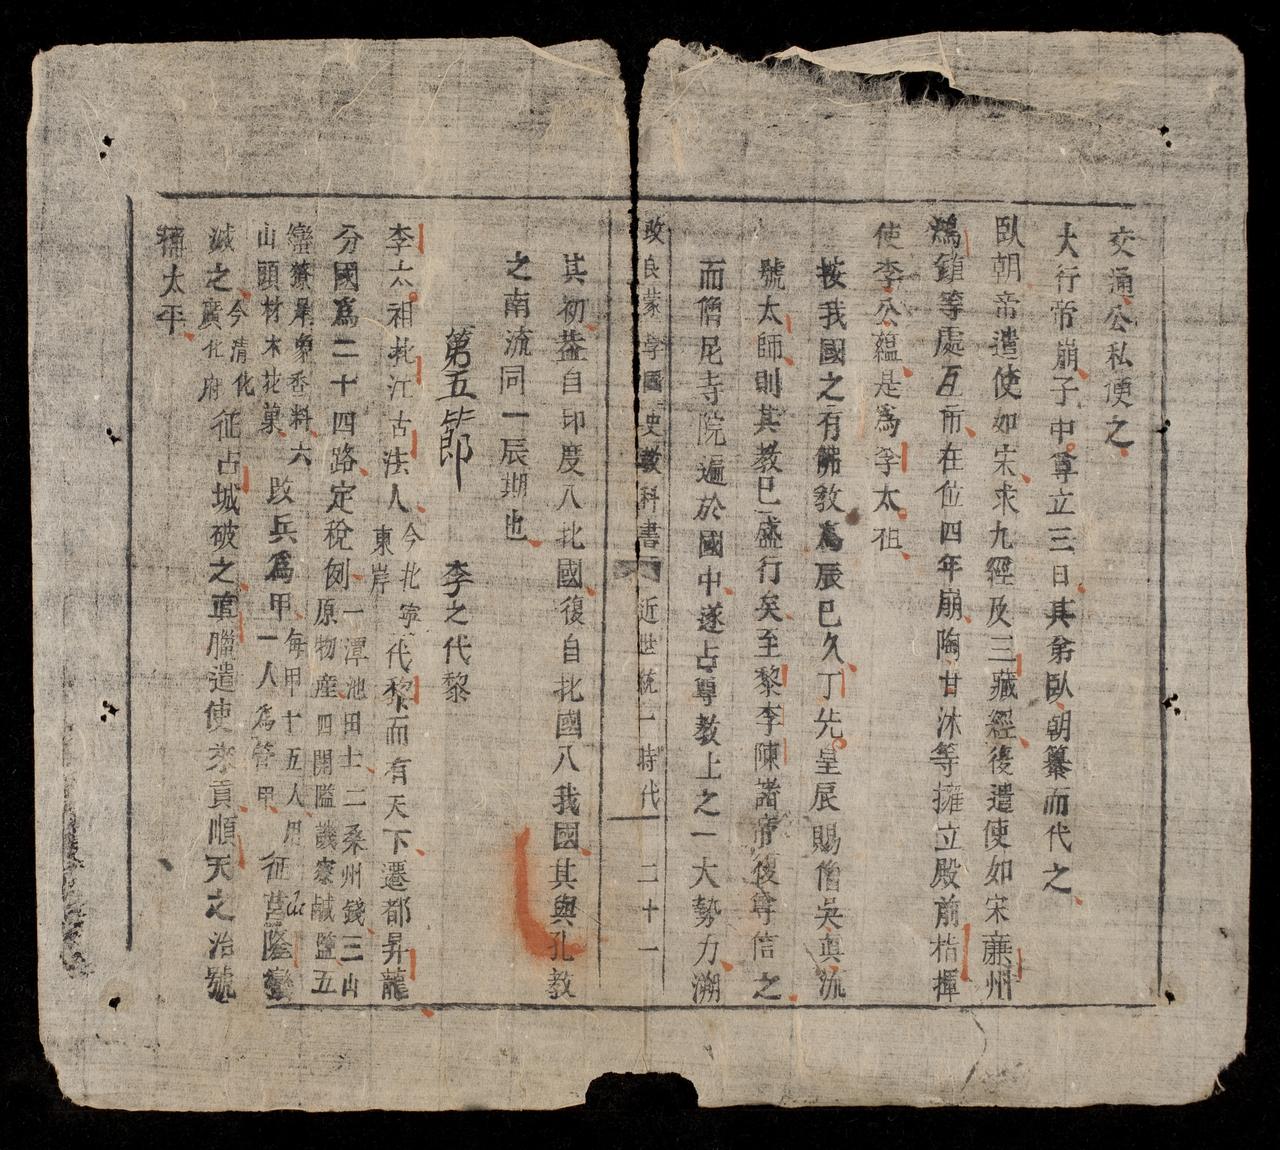 交通公私便之
大行帝崩子中尊立三日其弟臥朝纂而代之
臥朝帝遣使如宋求九經及三藏經後遣使如宋蔗州
鴻鎖等處互市在位四年崩陶甘沐等擁立殿前楷揮
使李公蘊是爲李太祖
按我國之有佛教爲辰已久丁先皇辰賜僧吳眞流
號太師則其教已盛行矣至黎李陳諸帝復尊信之
而僧尼寺院遍於國中遂占尊教上之一大勢力溯
改良蒙學國史教科書 近世統一時代 二十一
其初葢自印度入北國復自北國入我國其與孔教
之南流同一辰期也
第五節 李之代黎
李太祖北江古法人今北寧東岸代黎而有天下遷都昇龍
分國爲二十四路定稅例一潭池田土二桑州錢三山原物產四開隘譏察鹹鹽五
蠻獠犀象香料六山頭材木花菓改兵爲甲每甲十五人用一人爲管甲征莒隆蠻
滅之今清化廣化府征占城破之眞臘遣使來貢順天之治號
稱太平